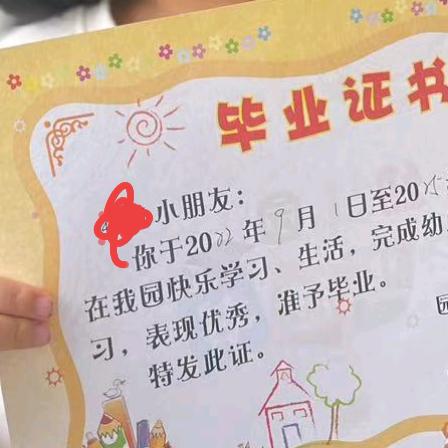 毕业证书
小朋友:
你于2022年9月1日至20
在我园快乐学习、生活,完成幼
习,表现优秀,准予毕业。
特发此证。
园